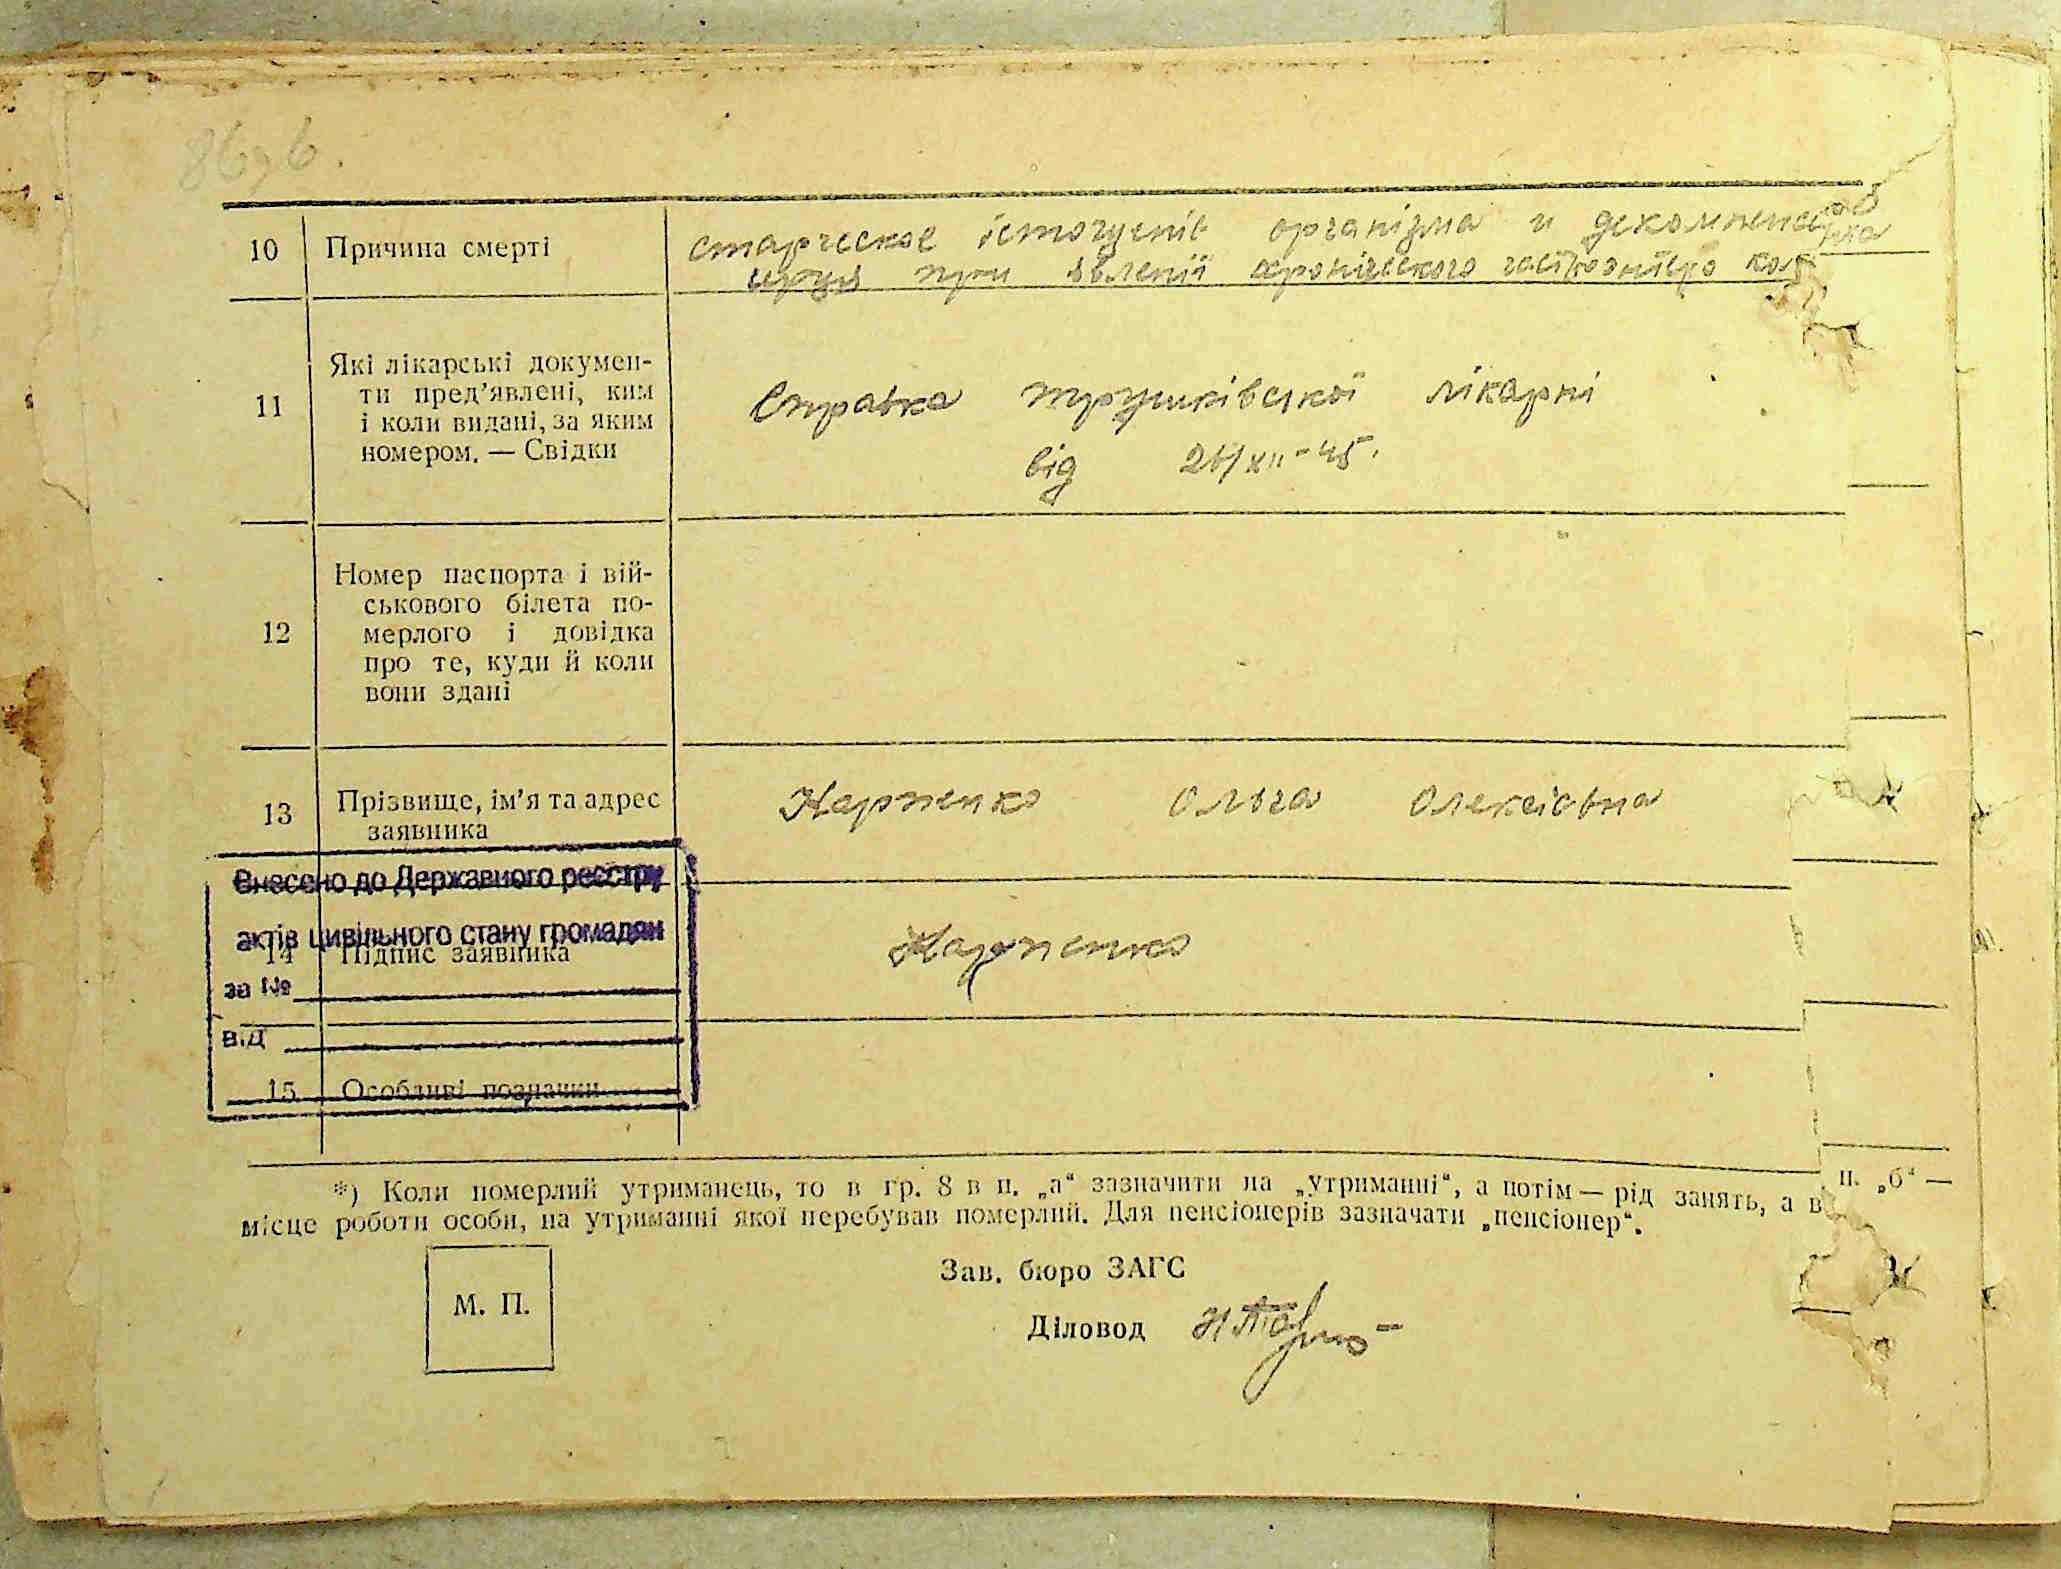 86 зв.
10 Причина смерті
старческое істощеніе організма и декомпенсація
при явленії хроніческого
11 Які лікарські докумен-
ти пред’явлені, ким
і коли видані, за яким
номером. — Свідки
Справка трушківської лікарні
від 26/XII-45.
12 Номер паспорта і вій-
ськового білета по-
мерлого і довідка
про те, куди й коли
вони здані
13 Прізвище, ім’я та адрес
заявника
Карпенко Ольга Олексіовна
Внесено до Державного реєстру
актів цивільного стану громадян
14 Підпис заявника
Карпенко
за №
від
15 Особливі позначки
*) Коли померлий утриманець, то в гр. 8 в п. „а“ зазначити на „утриманні“, а потім — рід занять, а в п. „б“ —
місце роботи особи, на утриманні якої перебував померлий. Для пенсіонерів зазначати „пенсіонер“.
М. П.
Зав. бюро ЗАГС
Діловод